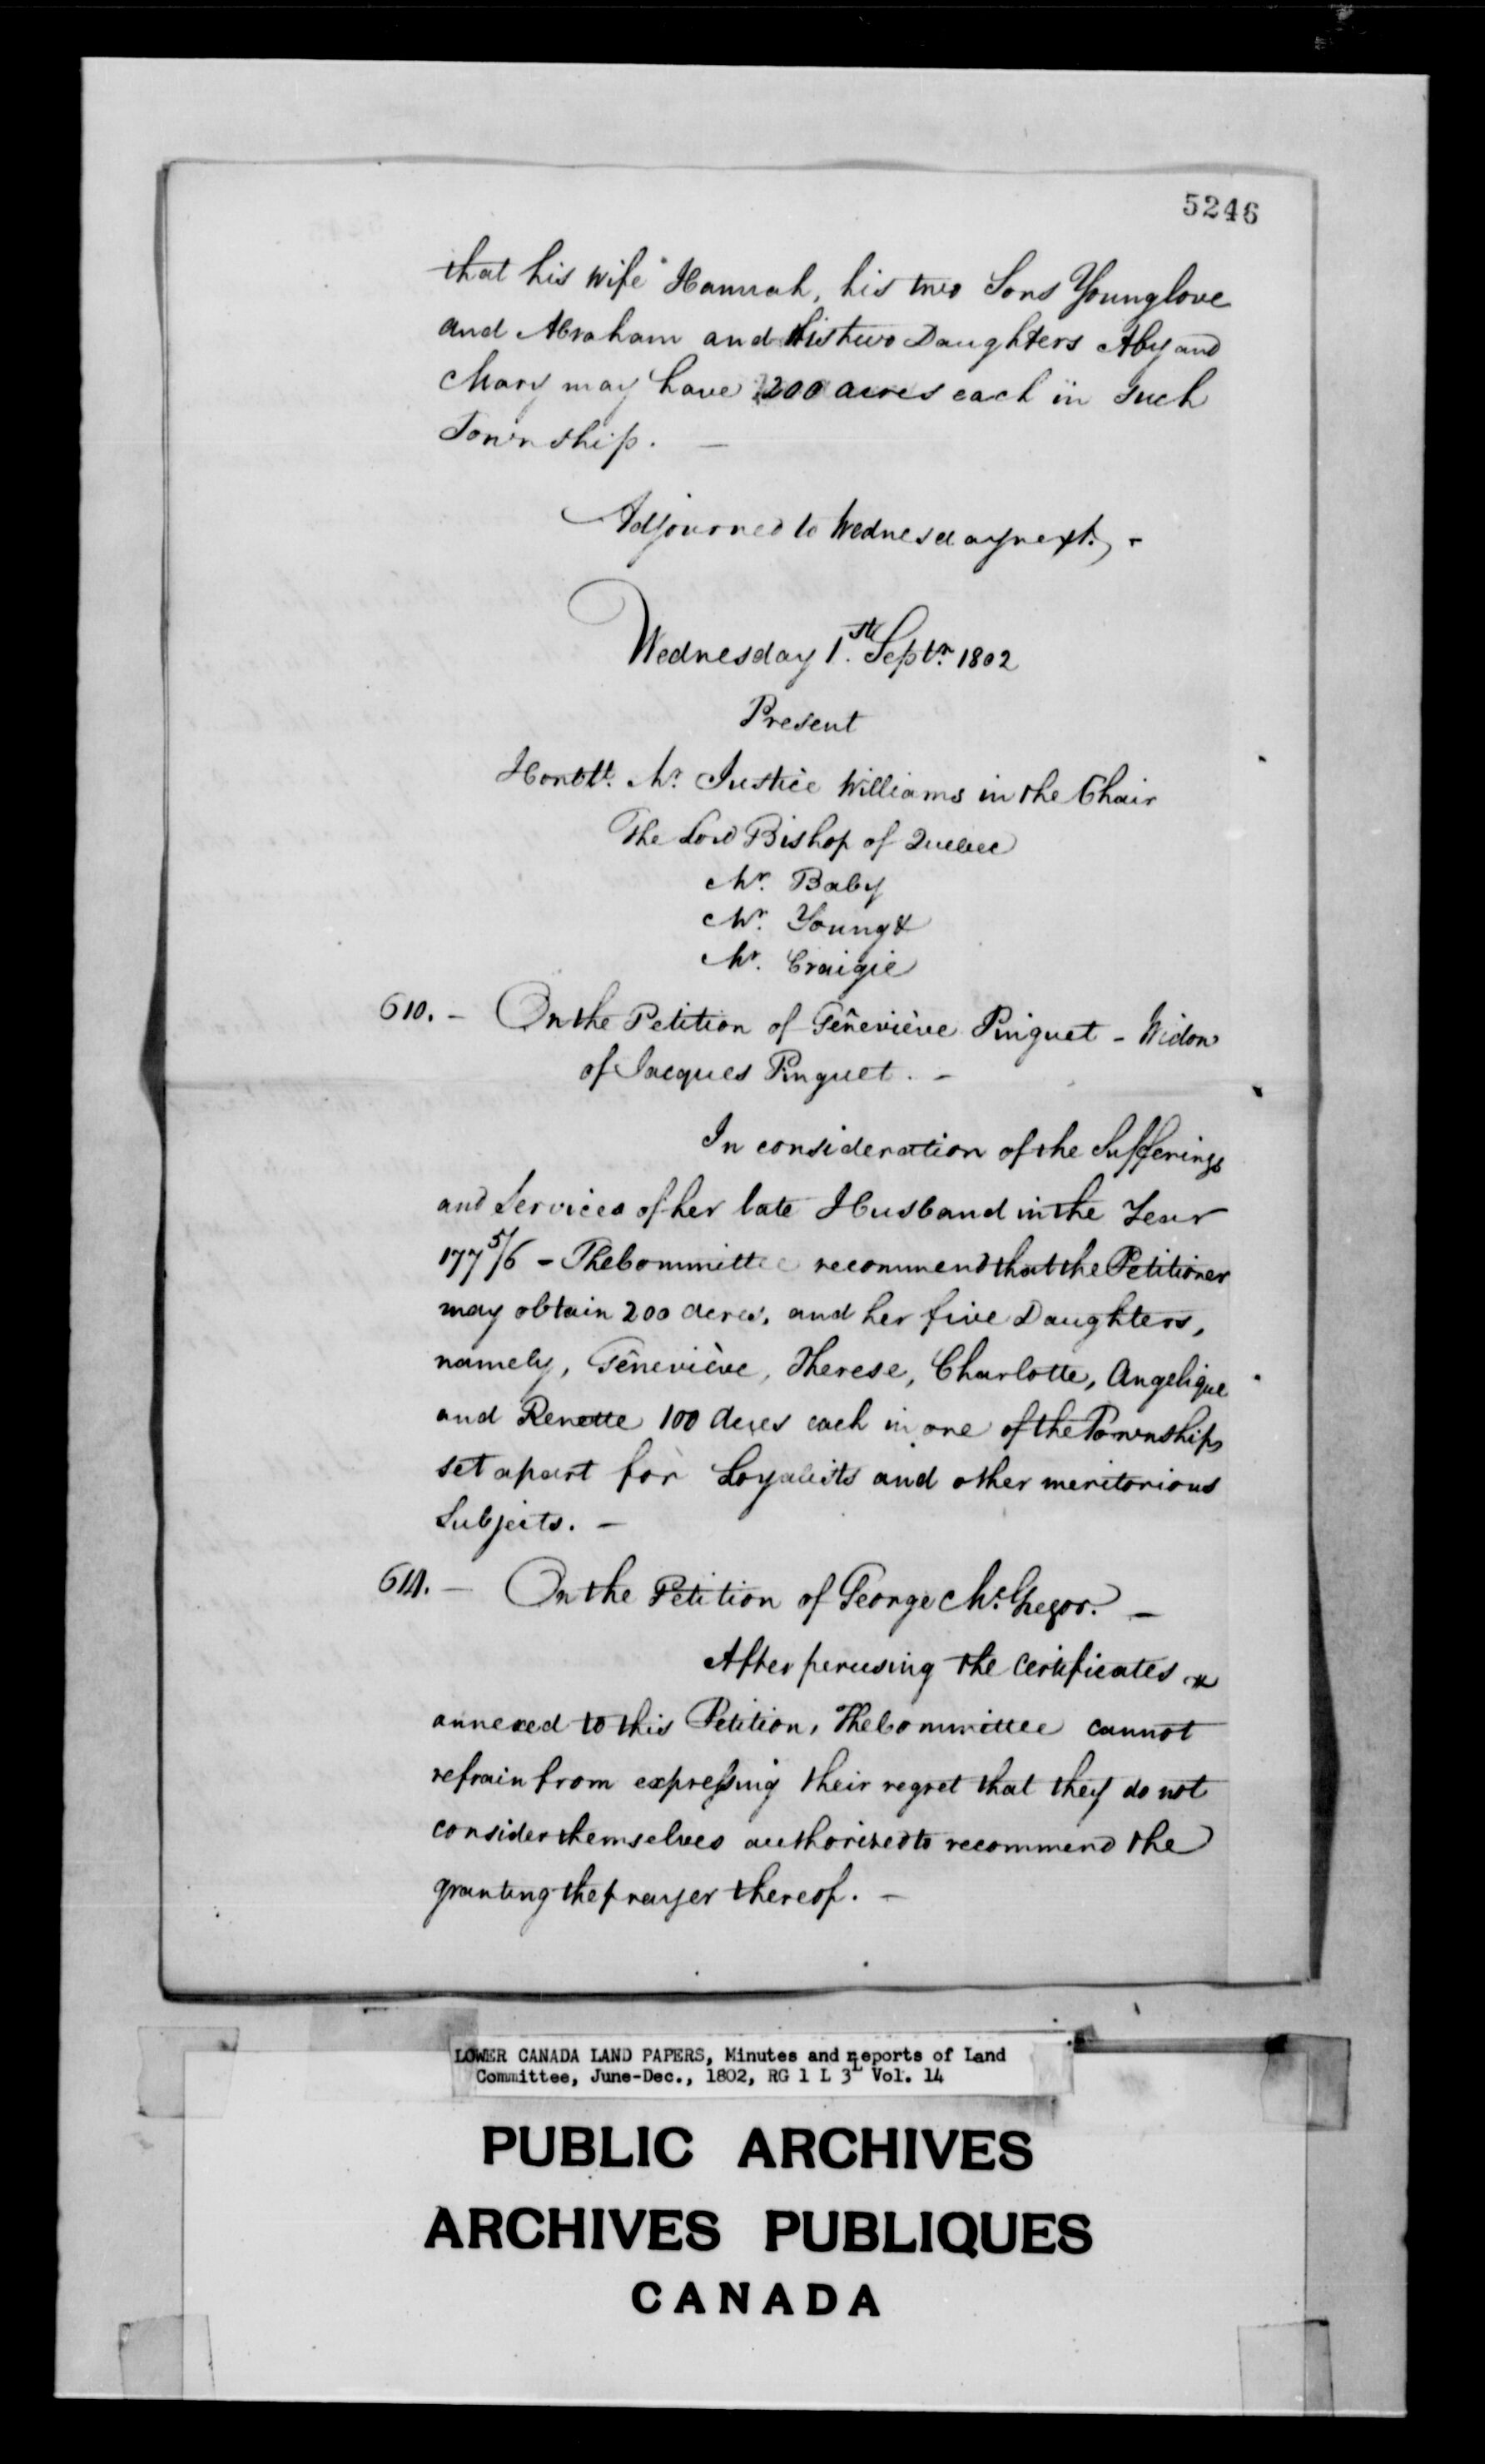 5246
that his wife Hannah, his two Sons Younglove
and Abraham and his two Daughters Aby and
Mary may have 200 acres each in such
Township. —
Adjourned to Wednesday next. -
Wednesday 1st. Septr. 1802
Present
Honble. Mr. Justice Williams in the Chair
The Lord Bishop of Quebec
Mr. Baby
Mr. Young &
Mr. Craigie
610. - On the Petition of Gêneviève Pinguet - Widow
of Jacques Pinguet. -
In consideration of the Sufferings
and Services of her late Husband in the Year
1775/6 - The Committee recommend that the Petitioner
may obtain 200 acres, and her five Daughters,
namely, Gêneviève, Therese, Charlotte, Angelique
and Renette 100 Acres each in one of the Townships
set apart for Loyalists and other meritorious
Subjects. -
611. - On the Petition of George McGregor. -
After perusing the Certificates
annexed to this Petition, The Committee cannot
refrain from expressing their regret that they do not
consider themselves authorized to recommend the
granting the prayer thereof. -
LOWER CANADA LAND PAPERS, Minutes and Reports of Land
Committee, June-Dec., 1802, RG 1 L 3L Vol. 14
PUBLIC ARCHIVES
ARCHIVES PUBLIQUES
CANADA